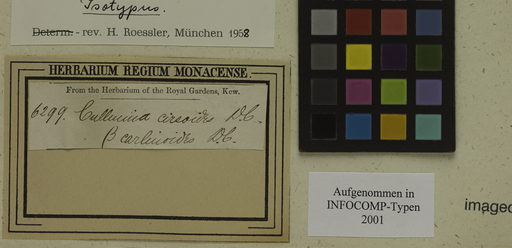 Isotypus.
Determ. - rev. H. Roessler, München 1958
HERBARIUM REGIUM MONACENSE.
From the Herbarium of the Royal Gardens, Kew.
6299. Cullumia cirsioides D.C.
β carlinoides D.C.
Aufgenommen in
INFOCOMP-Typen
2001
imaged